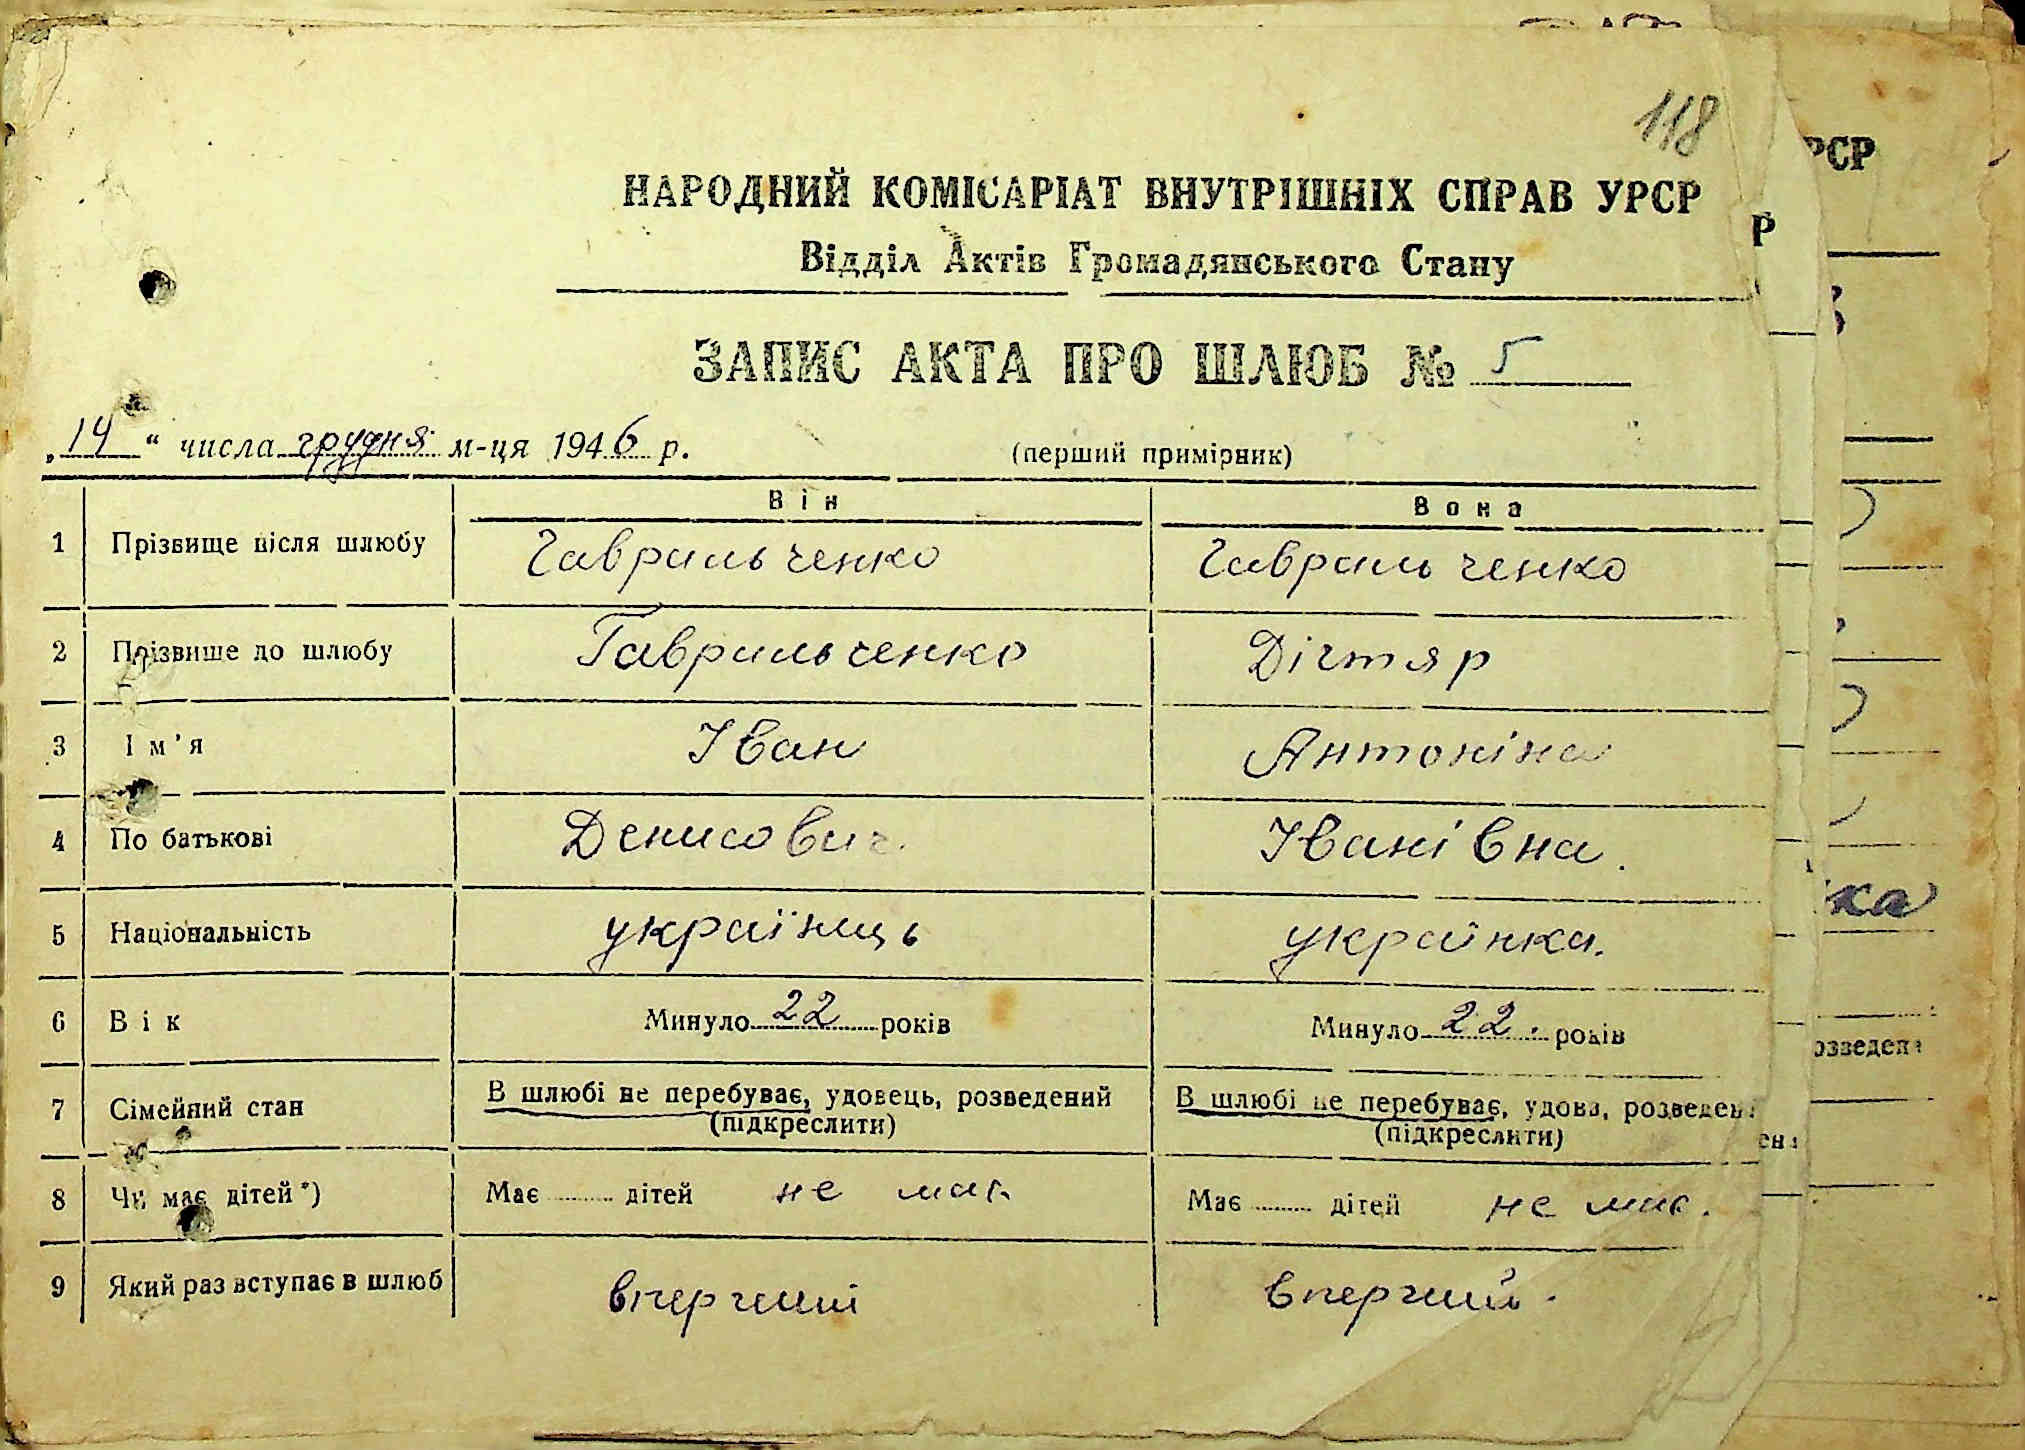 118
НАРОДНИЙ КОМІСАРІАТ ВНУТРІШНІХ СПРАВ УРСР
Відділ Актів Громадянського Стану
ЗАПИС АКТА ПРО ШЛЮБ № 5
„14“ числа грудня м-ця 1946 р. (перший примірник)
Він Вона
1 Прізвище після шлюбу Гаврильченко Гаврильченко
2 Прізвище до шлюбу Гаврильченко Дігтяр
3 Ім'я Іван Антоніна
4 По батькові Денисович. Іванівна.
5 Національність українць українка.
6 Вік Минуло 22 років Минуло 22. років
7 Сімейний стан В шлюбі не перебуває, удовець, розведений В шлюбі не перебуває, удова, розведена
(підкреслити) (підкреслити)
8 Чи має дітей*) Має дітей не має Має дітей не має.
9 Який раз вступає в шлюб вперший вперший.
РСР
Р
ка